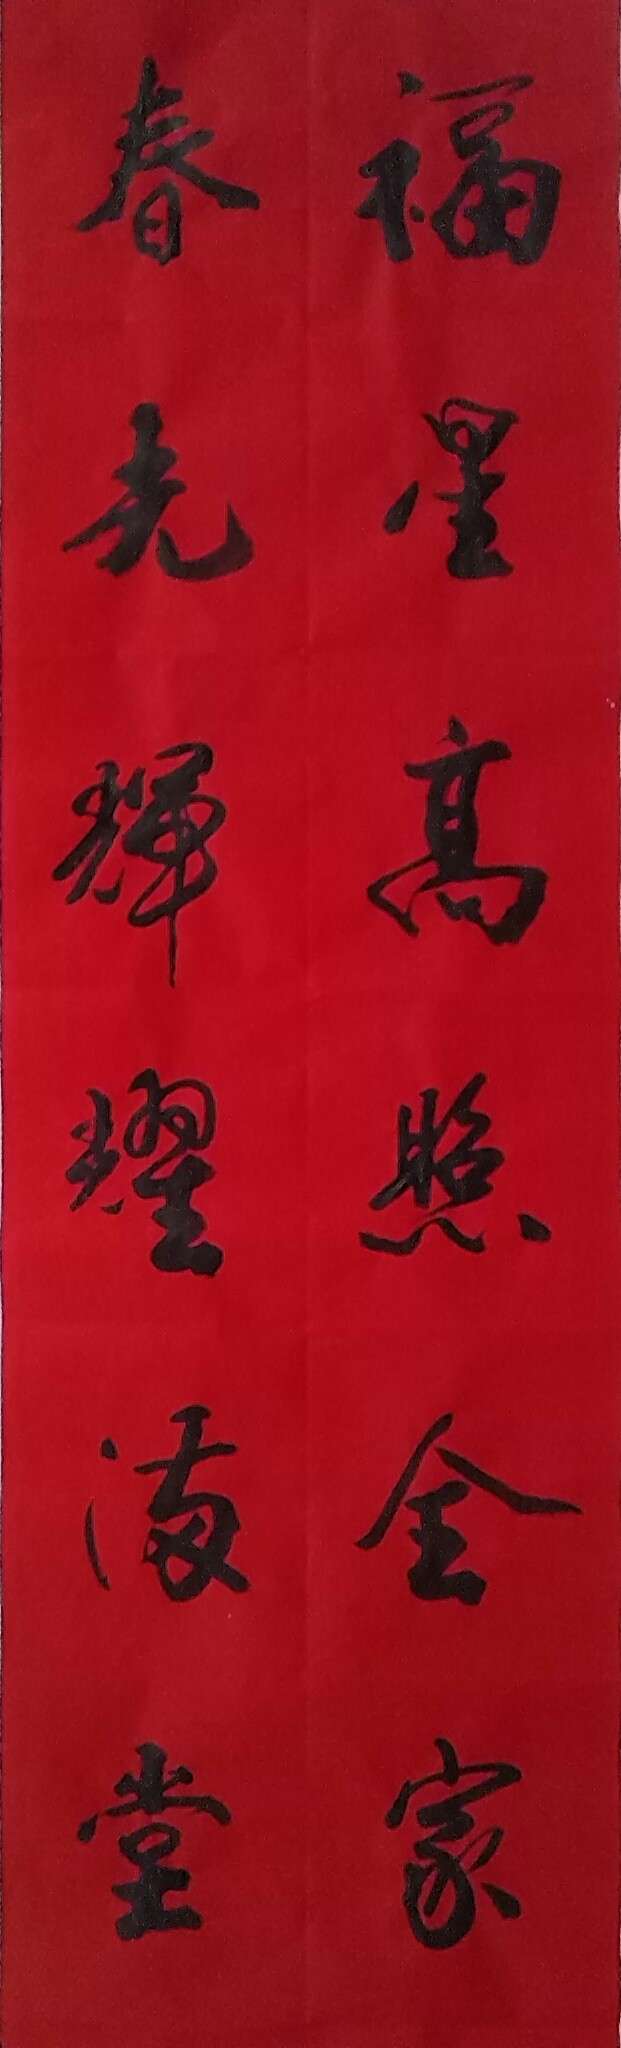 福星高照全家
春光輝耀满堂